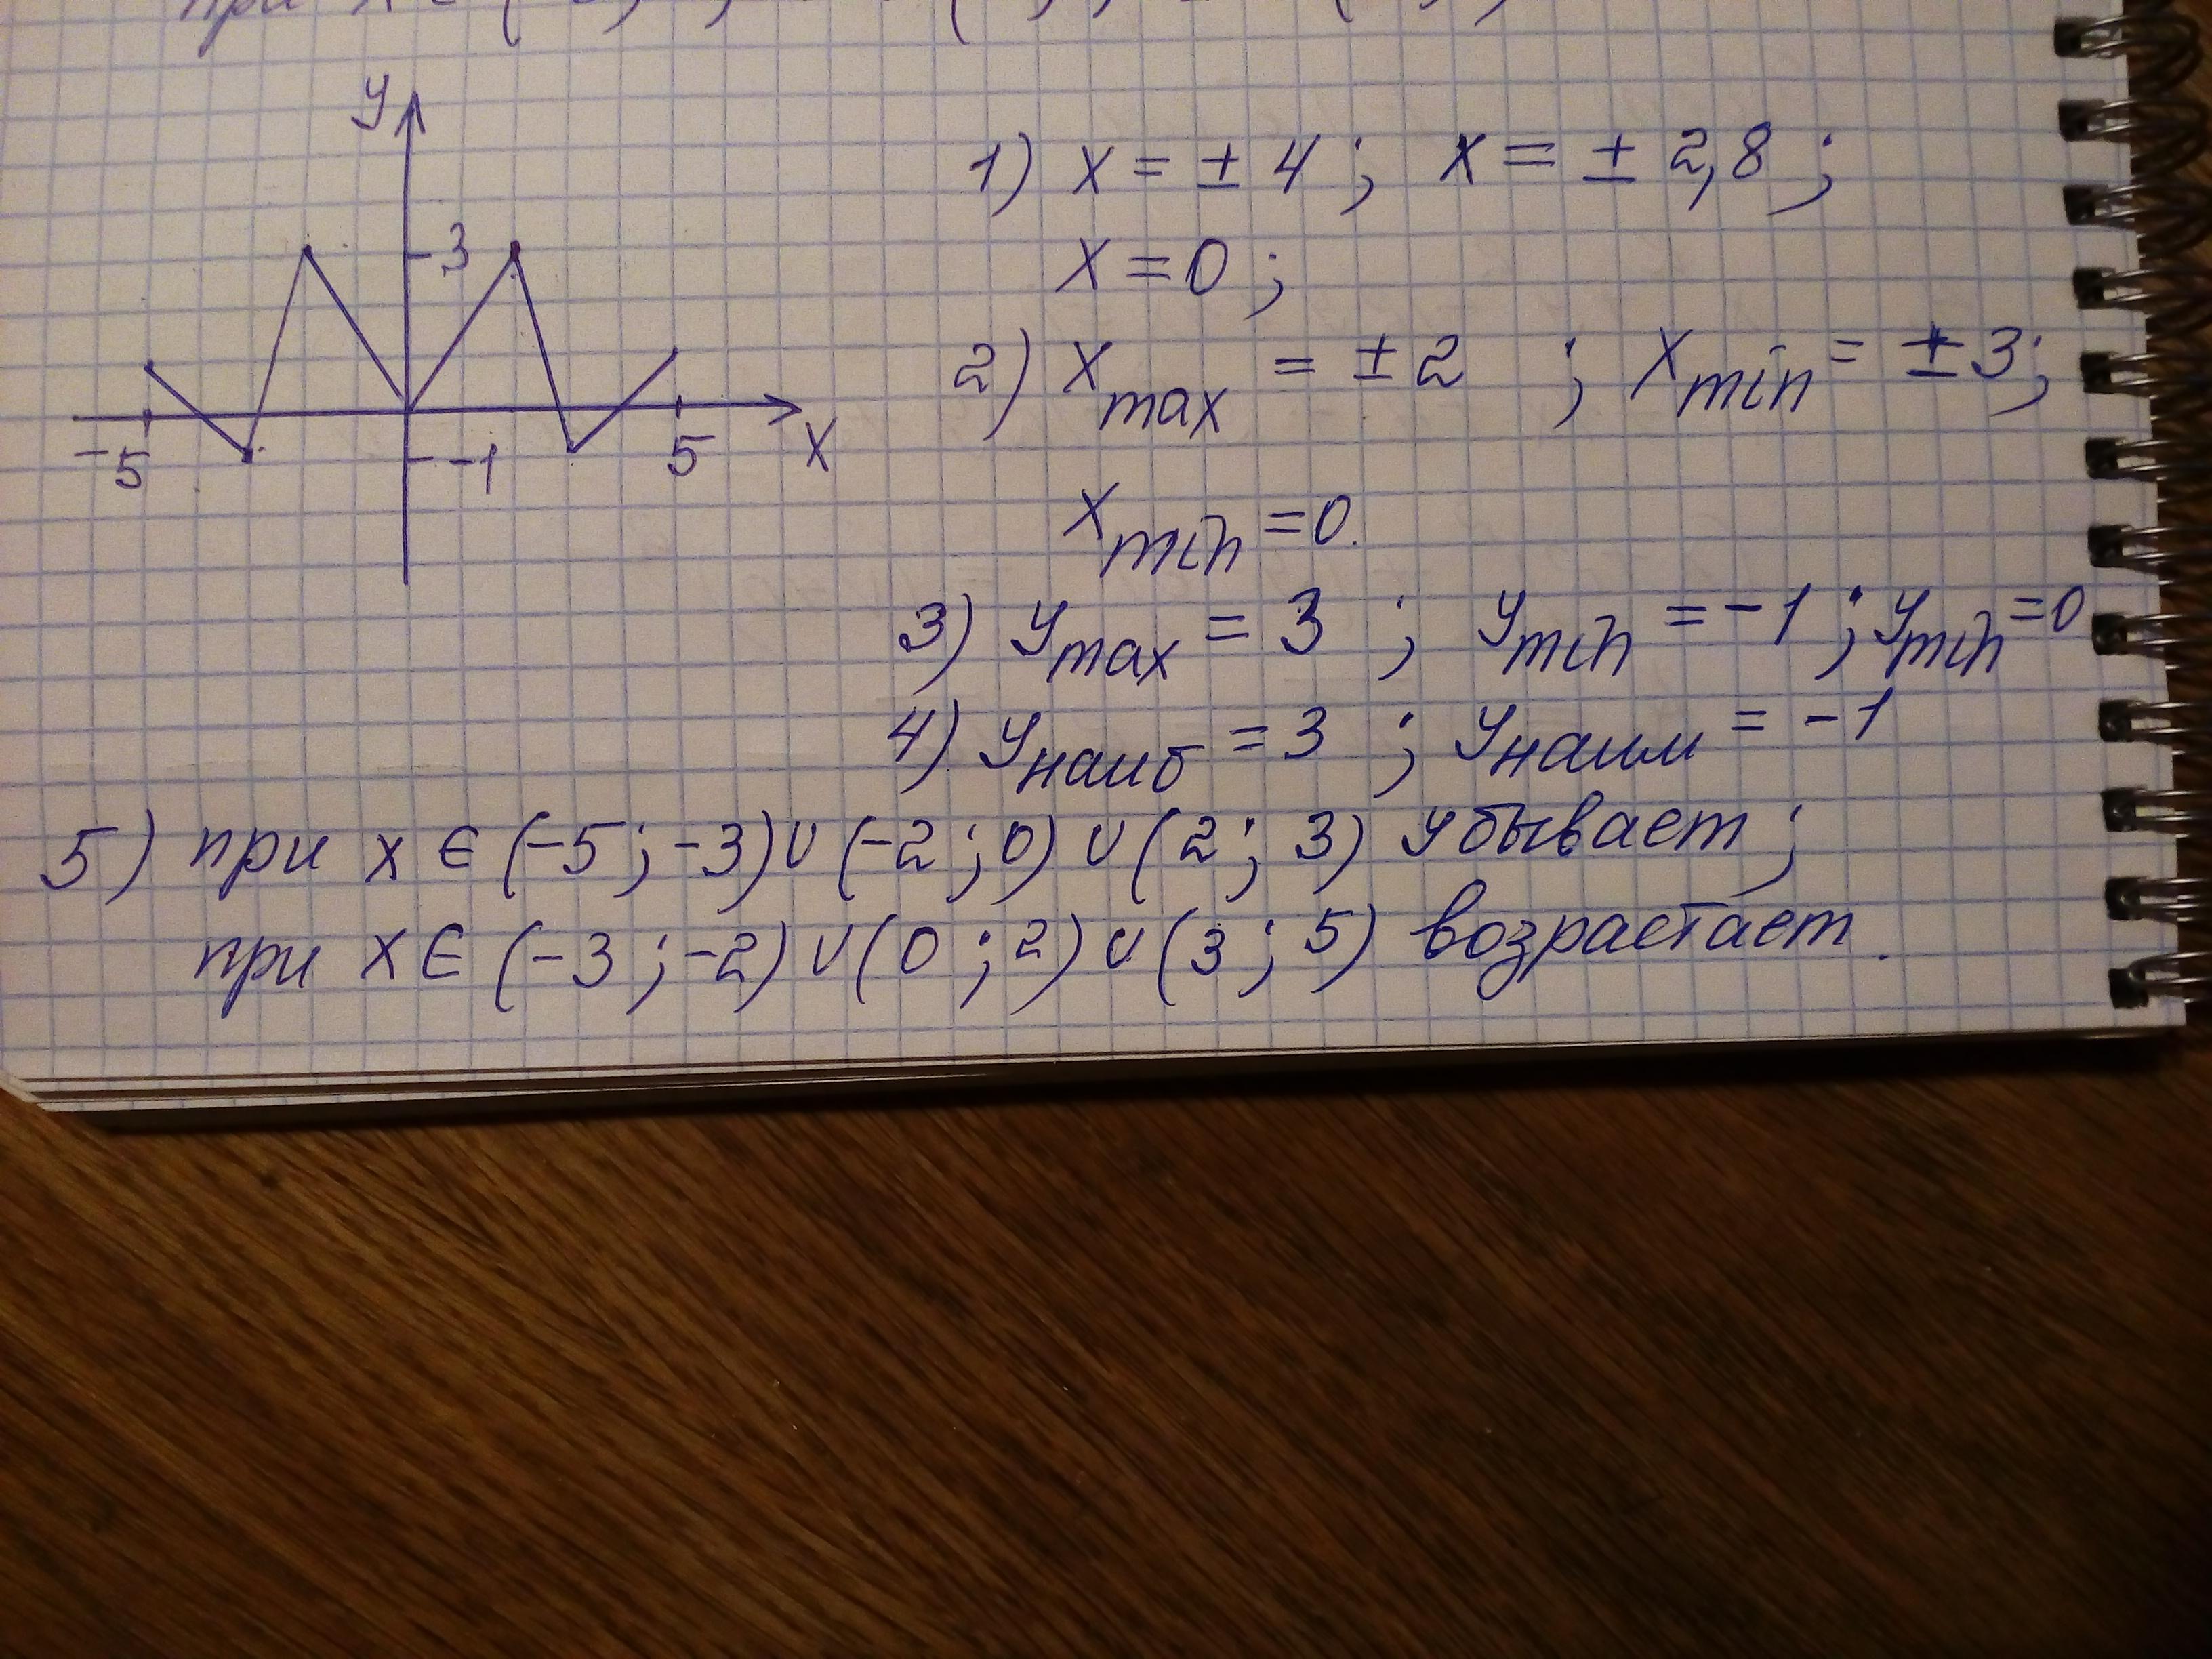 при x ∈
y
3
-5
-1
5
x
1) x = ± 4 ; x = ± 2,8 ;
x = 0 ;
2) x max = ± 2 ; x min = ± 3 ;
x min = 0.
3) y max = 3 ; y min = -1 ; y min = 0
4) y наиб = 3 ; y наим = -1
5) при x ∈ (-5 ; -3) ∪ (-2 ; 0) ∪ (2 ; 3) убывает ;
при x ∈ (-3 ; -2) ∪ (0 ; 2) ∪ (3 ; 5) возрастает.